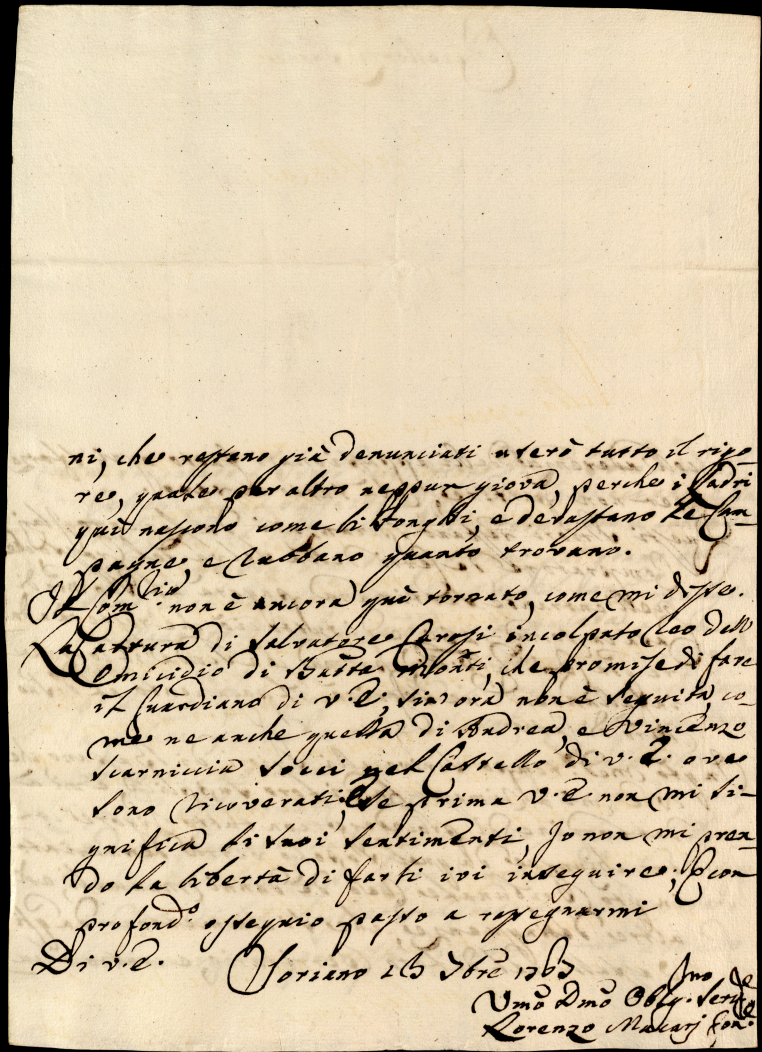 ni, che restano già denunciati userò tutto il rigo-
re, quale per altro neppur giova, perche i Ladri
quì nascono come li fonghi, e devastano le Cam-
pagne, e rubbano quanto trovano.
Il non è ancora quì tornato, come mi disse.
La Cattura di Salvatore Cerasi incolpato Reo dell'
Omicidio di Batta Monti, che promise di fare
il Guardiano di V. E., sin'ora non è seguita, co-
me ne anche quella di Andrea, e Vincenzo
Scarniccia Socci nel Castello di V. E. ove
sono ricoverati, e se prima V. E. non mi si-
gnifica li suoi sentimenti, Io non mi pren-
do la libertà di farli ivi inseguire; E con
profondo ossequio passo a rassegnarmi
Di V. E. Soriano 7bre 1763
Umo Dmo Obblg. Serv.
Lorenzo Macarj